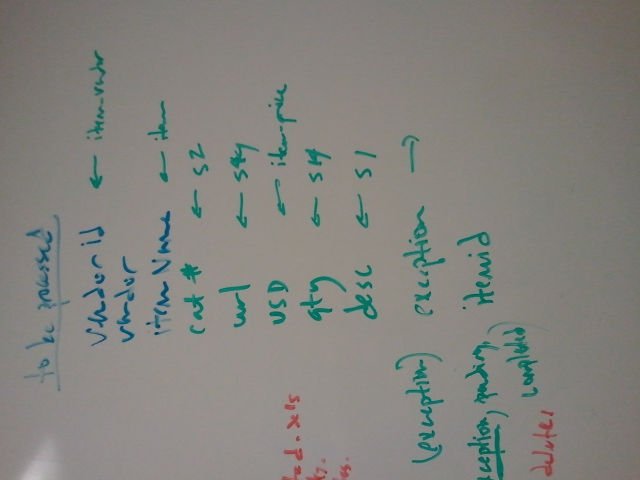 to be processed
vendor id ← item-vendor
vendor
item Name ← item
cat # ← s2
url ← s44
USD ← item-price
qty ← s14
desc ← s1
(exception) exception →
exception, pending, itemid
completed)
deletes